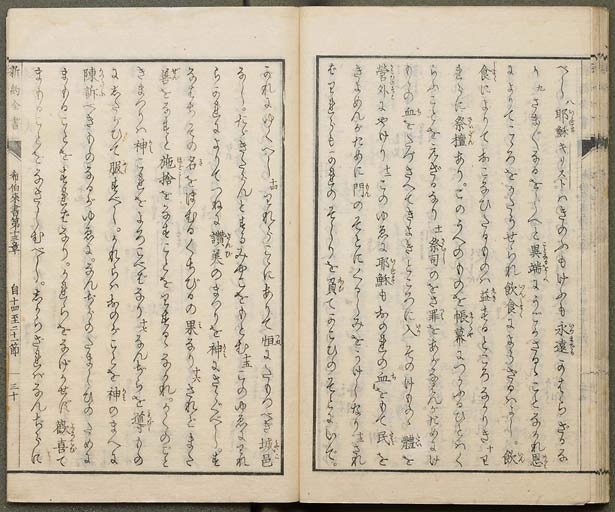 べし 八 耶穌キリストハきのふもけふも永遠かはらざるな
り 九 さまざまなるをしへと異端にうごかさるゝことなかれ恩
によりてこころをかたうせられ飲食によらざるハよし。飲
食によりておこなひたるものハ益をうるところなかりき 十 わ
れらに祭壇あり。このうへのものを帳幕につかふるひとハく
らふことをえざるなり 十一 祭司のをさ罪をあがなハんがためけも
のゝ血をたづさへてきよきところに入。そのけものゝ體を
營外にやけり 十二 このゆゑに耶穌もおのれの血をもて民を
きよめんがために門のそとにてくるしみをうけたり 十三 され
ばわれらもかれのそしりを負てかこひのそとにいで。
かれにゆくべし 十四 われらこゝにありて恒にたもつべき城邑
なし。たゞきたらんとするみやこをもとむ 十五 このゆゑにわれ
らかれによりてつねに讃美のまつりを神にさゝぐべし。す
なはちその名をほむるくちびるの果なり 十六 されどまた
善をなすと施捨をなすことをわするゝなかれ。かくのごと
きまつりハ神これをよろこべばなり 十七 なんぢらを導もの
にしたがひて服すべし。かれらハおのがことを神のまへに
陳訴べきものなるがゆゑに。なんぢらのたましひのために
まもることをすればなり。かれらをなげかせず歡喜て
まもることをなさしむべし。しからざればなんぢらに
新約全書 希伯來書第十三章 自十四至二十一節 三十